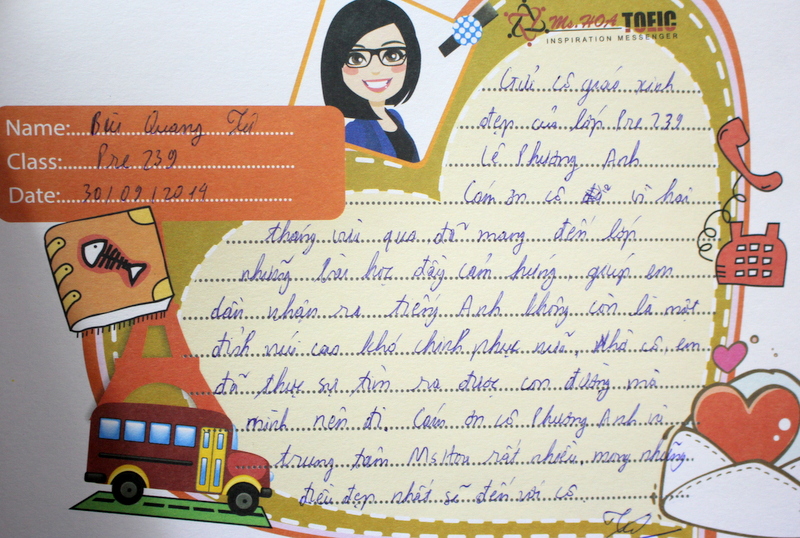 Ms.HOA TOEIC
INSPIRATION MESSENGER
Name: Bùi Quang Tú
Class: Pre 239
Date: 30/09/2014
Gửi cô giáo xinh
đẹp của lớp Pre 239
Lê Phương Anh
Cám ơn cô vì hai
tháng vừa qua đã mang đến lớp
những bài học đầy cảm hứng, giúp em
dần nhận ra tiếng Anh không còn là một
đỉnh núi cao khó chinh phục nữa. Nhờ cô, em
đã thực sự tìm ra được con đường mà
mình nên đi. Cám ơn cô Phương Anh và
trung tâm Ms Hoa rất nhiều, mong những
điều đẹp nhất sẽ đến với cô